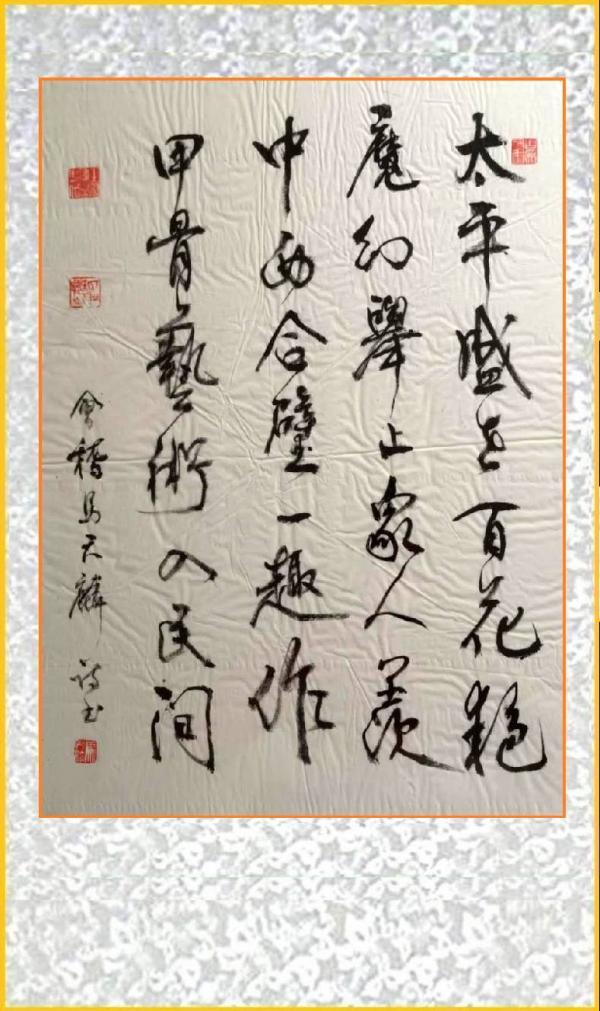 太平盛世百花艳
魔幻舉止众人羡
中西合璧一趣作
甲骨藝術入民间
會稽馬天麟 詩书